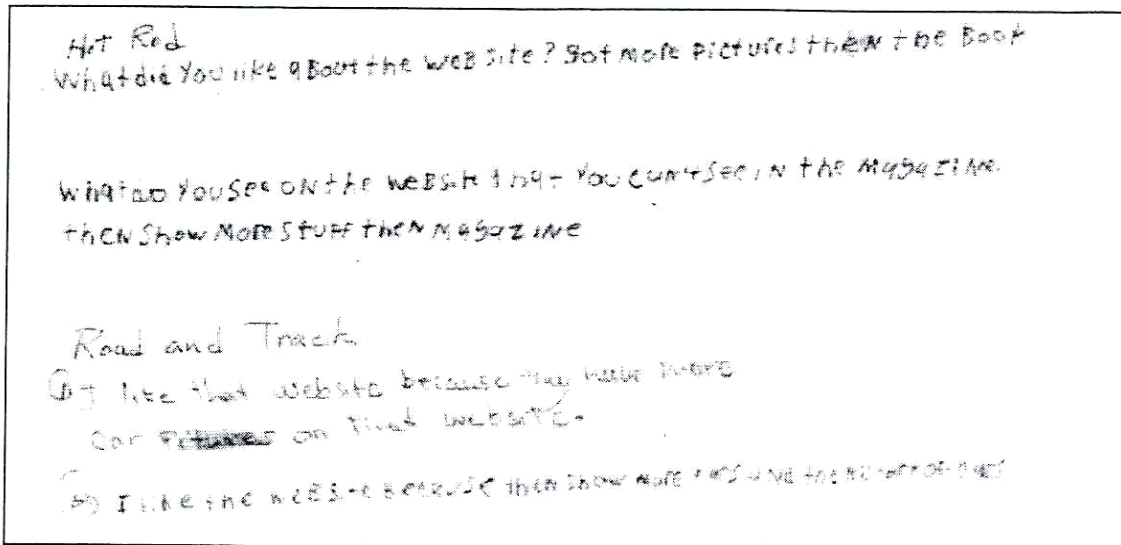 Hot Rod
What did You like aBout the weB site? got More pictures then the Book
What do You see oN the weBsite that You can't see iN the MagaziNe.
theN Show More Stuff theN MagaziNe
Road and Track
I like that website because they have more
Car on that website.
I like the weBsite Because then Show More cars and the